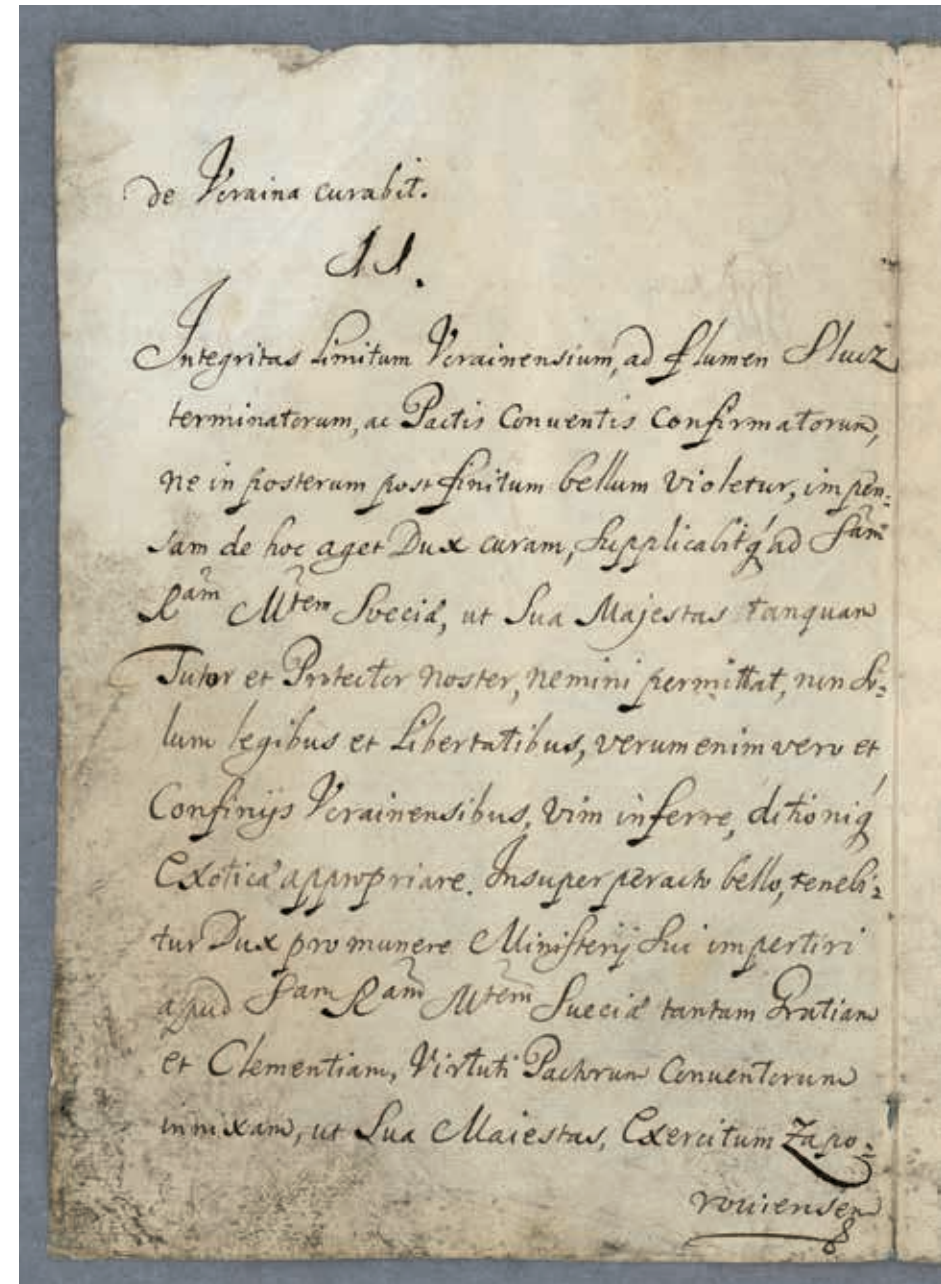 de Vcraina curabit.
II.
Integritas limitum Vcrainensium, ad flumen Slucz
terminatorum, ac Pactis Conuentis Confirmatorum,
ne in posterum post finitum bellum violetur, impen:
sam de hoc aget Dux curam, supplicabitq́ ad Sam̃
Ram̃ Mtem̃ Sveciæ, ut Sua Majestas tanquam
Tutor et Protector noster, nemini permittat, non so:
lum legibus et Libertatibus, verumenimvero et
Confinijs Vcrainensibus, vim inferre, ditioniq́
Exoticæ appropriare. Insuper peracto bello, tenebi:
tur Dux pro munere Ministerij sui impertiri
apud Sam Ram̃ Mtem̃ Sueciæ tantam Gratiam
et Clementiam, Virtuti Pactorum Conuentorum
innixam, ut Sua Maiestas, Exercitum Zapo:
rouiensem